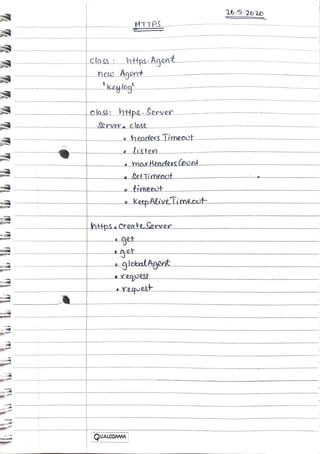 26.5.2020
HTTPS
class: https.Agent
new Agent
'keylog'
class: https.Server
Server. close
. headers Timeout
. listen
. maxHeadersCount
. SetTimeout
. timeout
. KeepAliveTimeout
https.createServer
. get
. get
. globalAgent
. request
. request
QUALCOMM